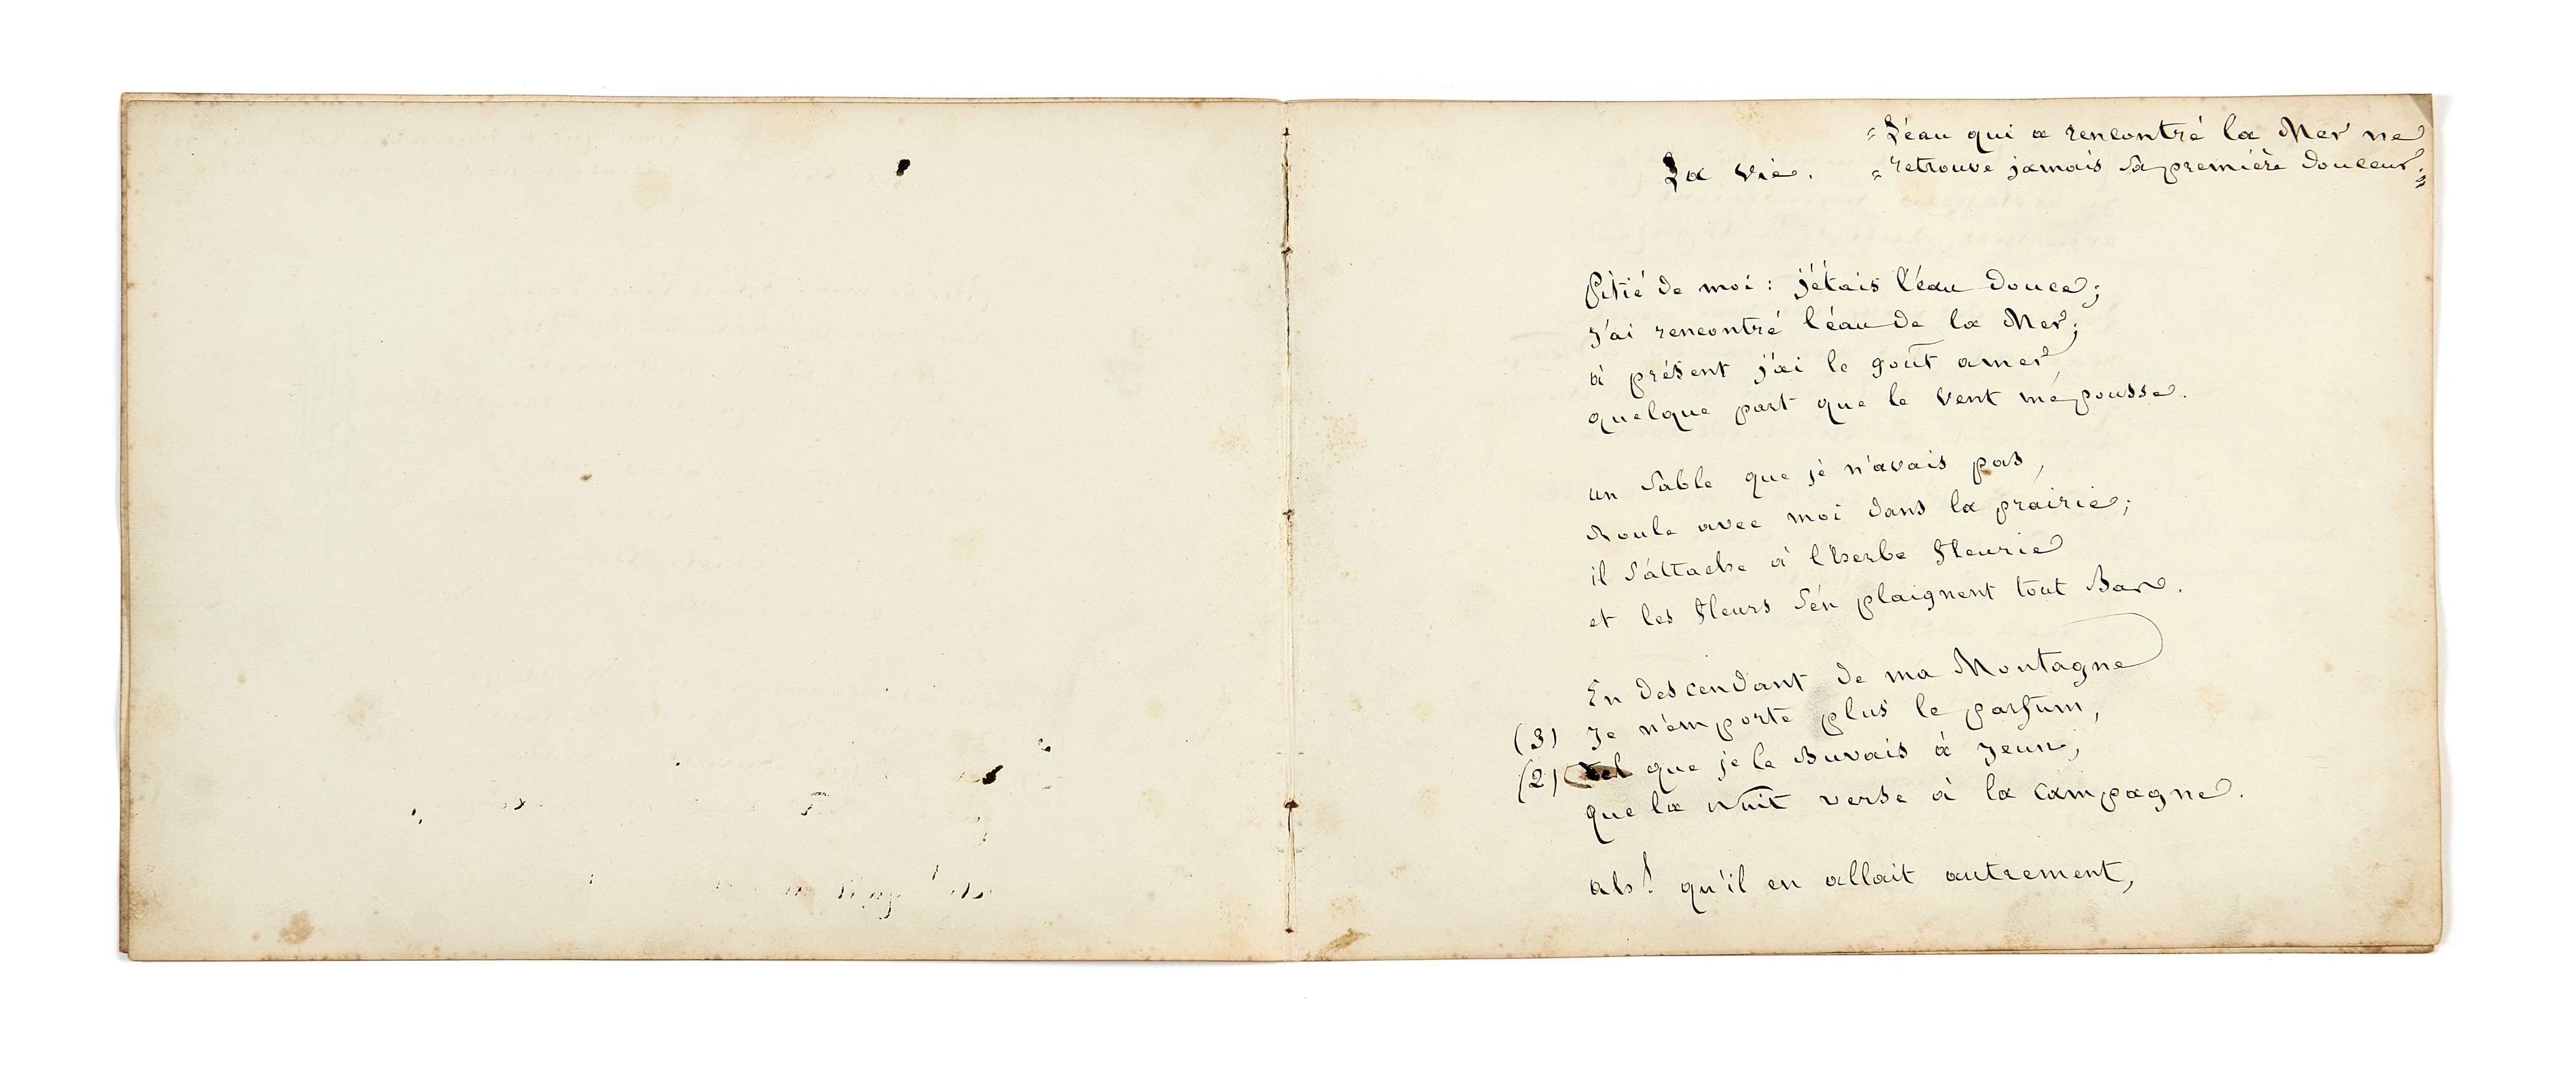 La vie.
"L'éau qui a rencontré la Mer ne
"retrouve jamais sa première douceur."
Pitié de moi : j'étais l'éau douce ;
J'ai rencontré l'éau de la Mer ;
à présent j'ai le goût amer,
quelque part que le vent mé pousse.
un sable que jé n'avais pas,
Roule avec moi dans la prairie ;
il s'attache à l'herbe fleurie
et les fleurs s'én plaignent tout Bas.
En descendant de ma Montagne
(3) Je n'emporte plus le parfum,
(2) tel que je le Buvais à Jeun,
que la Nuit verse à la campagne.
als! qu'il en allait autrement,